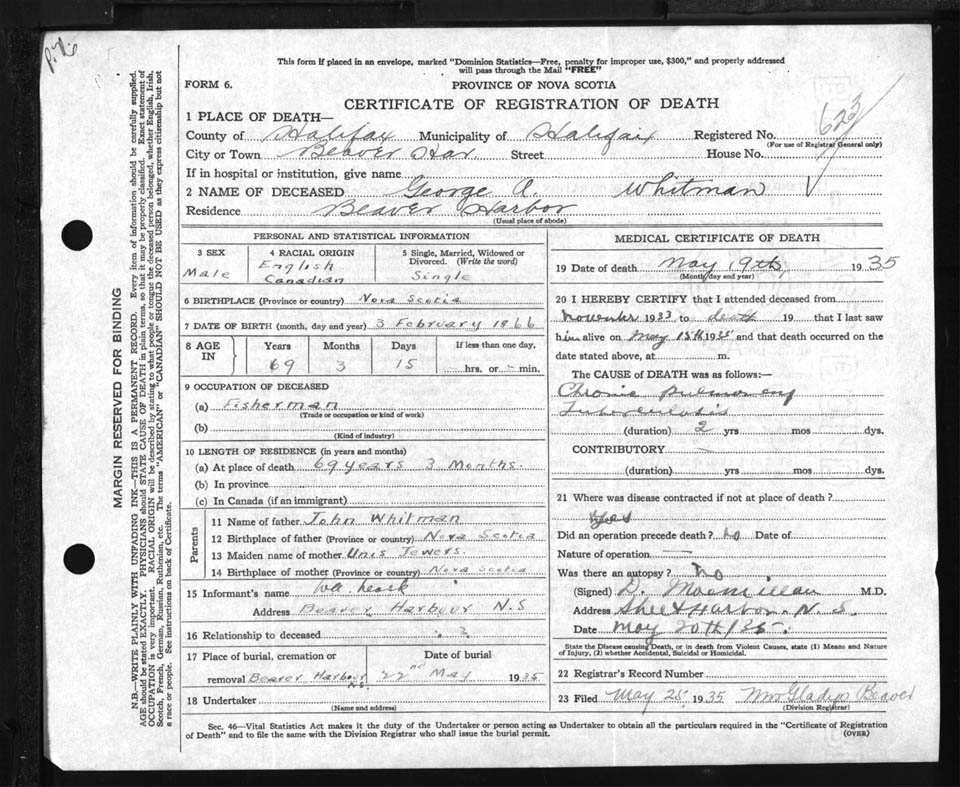 P.76
This form if placed in an envelope, marked "Dominion Statistics—Free, penalty for improper use, $300," and properly addressed
will pass through the Mail "FREE"
FORM 6.
PROVINCE OF NOVA SCOTIA
CERTIFICATE OF REGISTRATION OF DEATH
623
1 PLACE OF DEATH—
County of Halifax Municipality of Halifax Registered No.
(For use of Registrar General only)
City or Town Beaver Har. Street House No.
If in hospital or institution, give name
2 NAME OF DECEASED George A. Whitman
Residence Beaver Harbor
(Usual place of abode)
PERSONAL AND STATISTICAL INFORMATION
3 SEX
Male
4 RACIAL ORIGIN
English
Canadian
5 Single, Married, Widowed or
Divorced. (Write the word)
Single
6 BIRTHPLACE (Province or country) Nova Scotia
7 DATE OF BIRTH (month, day and year) 3 February 1866
8 AGE IN
Years Months Days If less than one day,
69 3 15 hrs. or min.
9 OCCUPATION OF DECEASED
(a) Fisherman
(Trade or occupation or kind of work)
(b)
(Kind of industry)
10 LENGTH OF RESIDENCE (in years and months)
(a) At place of death 69 years 3 Months.
(b) In province
(c) In Canada (if an immigrant)
Parents
11 Name of father John Whitman
12 Birthplace of father (Province or country) Nova Scotia
13 Maiden name of mother Unis Jewers.
14 Birthplace of mother (Province or country) Nova Scotia
15 Informant's name
Address Beaver Harbour N.S
16 Relationship to deceased
17 Place of burial, cremation or Date of burial
removal Beaver Harbour N.S. 22nd May 1935
18 Undertaker
(Name and address)
MEDICAL CERTIFICATE OF DEATH
19 Date of death May 19th, 1935
(Month, day and year)
20 I HEREBY CERTIFY that I attended deceased from
November 1933 to death 19 that I last saw
him alive on May 15th 1935 and that death occurred on the
date stated above, at m.
The CAUSE OF DEATH was as follows:—
Chronic pulmonary
Tuberculosis
(duration) 2 yrs mos dys.
CONTRIBUTORY
(duration) yrs mos dys.
21 Where was disease contracted if not at place of death?
yes
Did an operation precede death? no Date of
Nature of operation —
Was there an autopsy? no
(Signed) D. Macmillan M.D.
Address Sheet Harbor. N.S.
Date May 20th/35.
State the Disease causing Death, or in death from Violent Causes, state (1) Means and Nature
of Injury, (2) whether Accidental, Suicidal or Homicidal.
22 Registrar's Record Number
23 Filed May 25, 1935 Mrs Gladys Beaver
(Division Registrar)
Sec. 46—Vital Statistics Act makes it the duty of the Undertaker or person acting as Undertaker to obtain all the particulars required in the "Certificate of Registration
of Death" and to file the same with the Division Registrar who shall issue the burial permit.
(OVER)
MARGIN RESERVED FOR BINDING
N.B.—WRITE PLAINLY WITH UNFADING INK—THIS IS A PERMANENT RECORD. Every item of information should be carefully supplied.
AGE should be stated EXACTLY. PHYSICIANS should STATE CAUSE OF DEATH in plain terms, so that it may be properly classified. Exact statement of
OCCUPATION is very important. RACIAL ORIGIN will be described by stating to what people or tongue the deceased person belonged, whether English, Irish,
Scotch, French, German, Russian, Ruthenian, etc. The terms "AMERICAN" or "CANADIAN" SHOULD NOT BE USED as they express citizenship but not
a race or people. See instructions on back of Certificate.